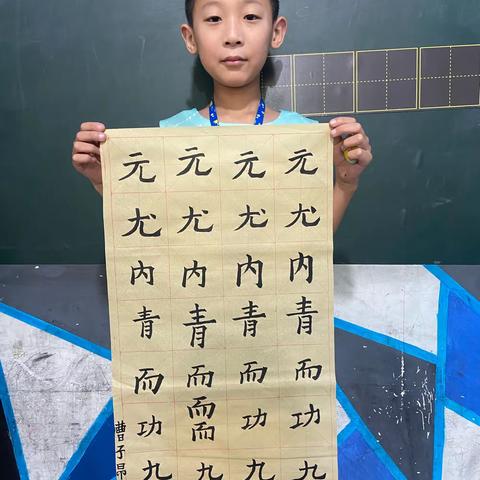 元 元 元 元
尤 尤 尤 尤
内 内 内 内
青 青 青 青
而 而 而 而
功 而而 功 功
九 九 九 九
曹子昂